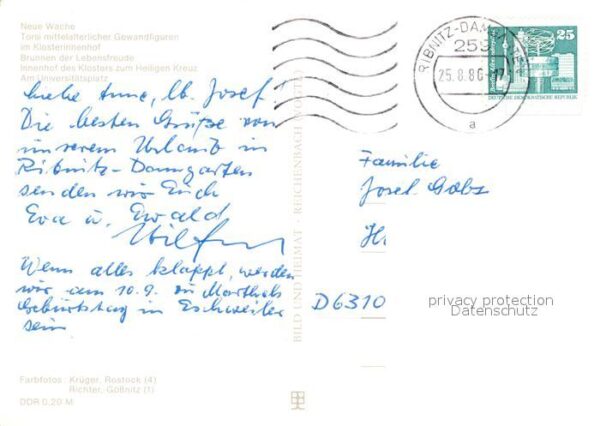 Neue Wache
Torsi mittelalterlicher Gewandfiguren
im Klosterinnenhof
Brunnen der Lebensfreude
Innenhof des Klosters zum Heiligen Kreuz
Am Universitätsplatz
Liebe Anne, lb. Josef!
Die besten Grüße von
unserem Urlaub in
Ribnitz-Damgarten
senden wir Euch
Eva u. Ewald
Wenn alles klappt, werden
wir am 10.9. zu Marthels
Geburtstag in Eschweiler
sein
Farbfotos: Krüger, Rostock (4)
Richter, Gößnitz (1)
DDR 0,20 M
BILD UND HEIMAT REICHENBACH (VOGTL)
RIBNITZ-DAMG
259
25.8.86
a
25
DEUTSCHE DEMOKRATISCHE REPUBLIK
Familie
Josef
D6310
privacy protection
Datenschutz